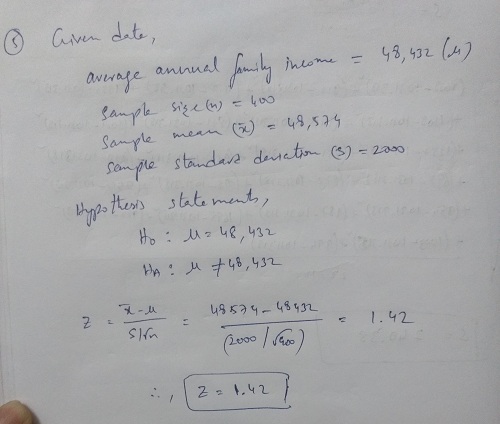 (5) Given date,
average annual family income = 48,432 (μ)
sample size (n) = 400
sample mean (x̄) = 48,574
sample standard deviation (s) = 2000
Hypothesis statements,
H₀ : μ = 48,432
Hₐ : μ ≠ 48,432
Z = (x̄ - μ) / (s/√n) = (48574 - 48432) / (2000/√400) = 1.42
∴, Z = 1.42